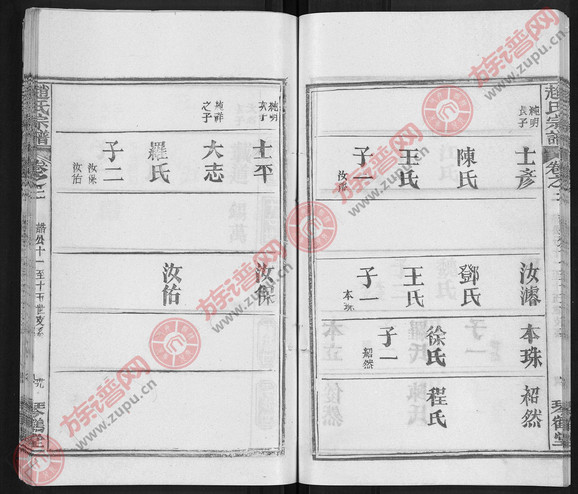 趙氏宗譜
卷之二
純明
長子
士彥
陳氏
王氏
子一
汝濬
鄧氏
王氏
子一
本珠
本珠
徐氏
子一
紹然
紹然
程氏
琴鶴堂
趙氏宗譜
卷之二
士平
純祥
之子
大志
羅氏
子二
汝保
汝佑
汝保
汝佑
琴鶴堂
族谱网
www.zupu.cn